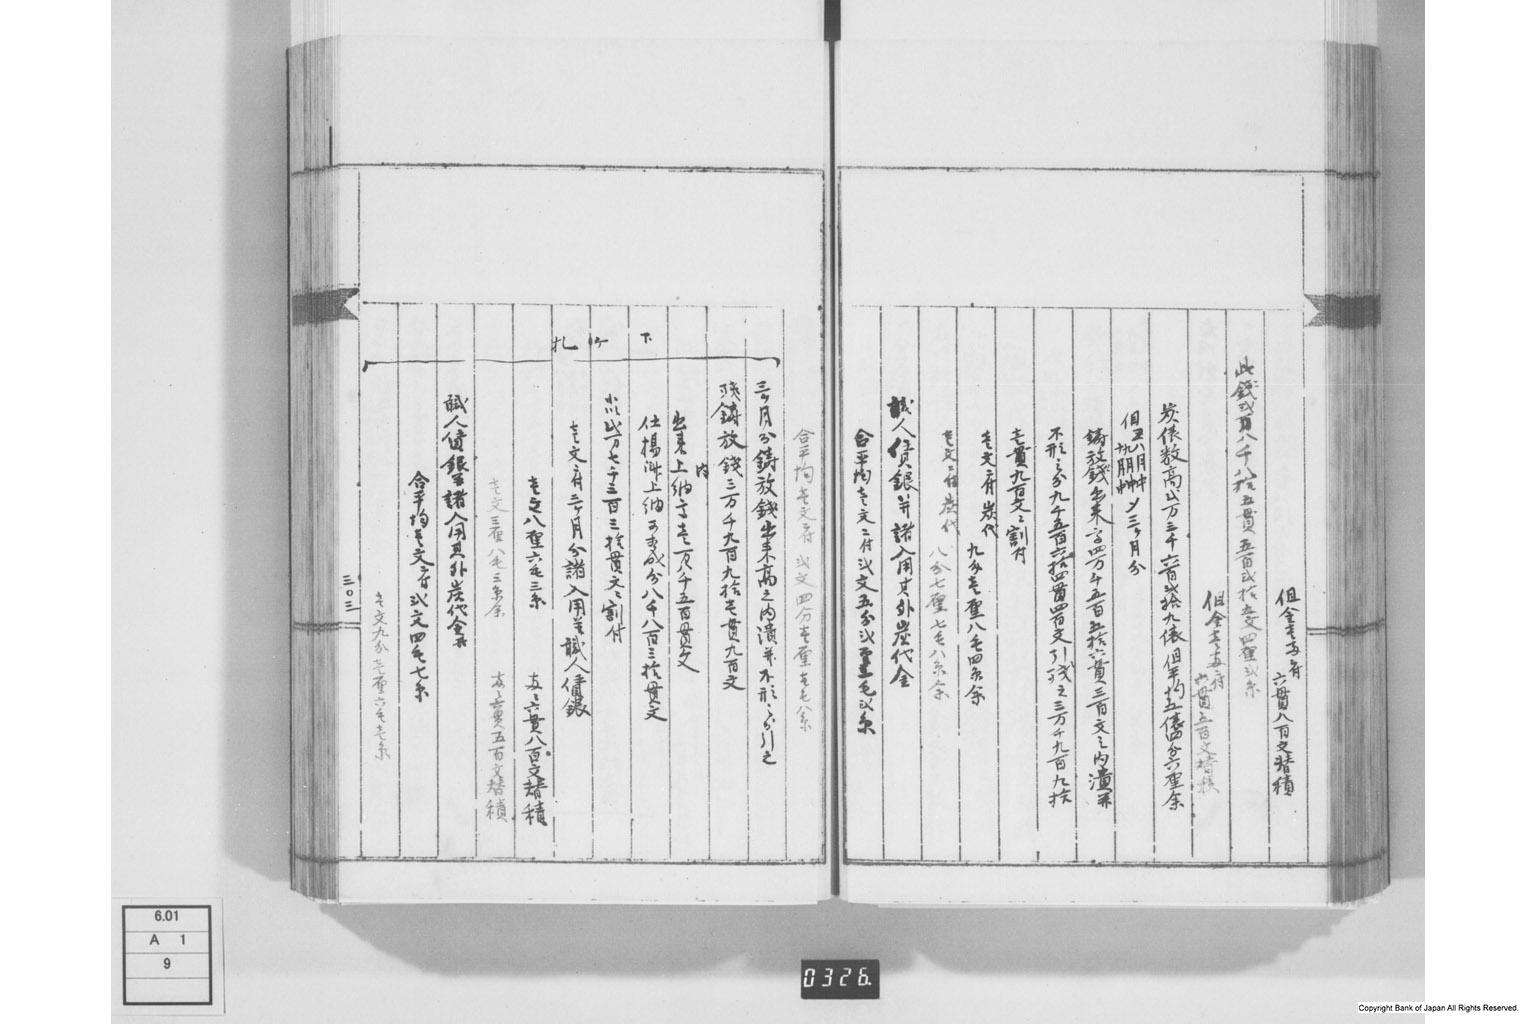 但金壱両ニ付
六貫八百文替積
此銭弐百八千八拾五貫五百弐拾壱文四厘弐糸
但金壱両ニ付
六貫五百文替積
炭俵数高弐万三千六百弐拾九俵但平均五俵四分六厘余
但丑八月中ゟ
九月中迄三ヶ月分
鋳放銭出来高四万千五百五拾六貫三百文之内潰并
不形之分九千五百六拾四貫四百文引残之三万千九百九拾
壱貫九百文ニ割付
壱文ニ付炭代
九分壱厘八毛四糸余
壱文ニ付炭代
八分七厘七毛八糸余
職人賃銀并諸入用其外炭代金
合平均壱文ニ付弐文五分弐厘壱毛弐糸
合平均壱文ニ付弐文四分壱厘壱毛八糸
下ケ札
三ヶ月分鋳放銭出来高之内潰并不形之分引之
残鋳放銭三万千九百九拾壱貫九百文
内
出来上納高壱万八千五百貫文
仕揚済上納可相成分八千八百三拾貫文
小以弐万七千三百三拾貫文ニ割付
壱文ニ付三ヶ月分諸入用并職人賃銀
壱文八厘六毛三糸
両ニ六貫八百文替積
壱文三厘八毛三糸余
両ニ六貫五百文替積
職人賃銀并諸入用其外炭代金共
合平均壱文ニ付弐文四毛七糸
壱文九分壱厘六毛壱糸
三〇三
6.01
A 1
9
0326.
Copyright Bank of Japan All Rights Reserved.